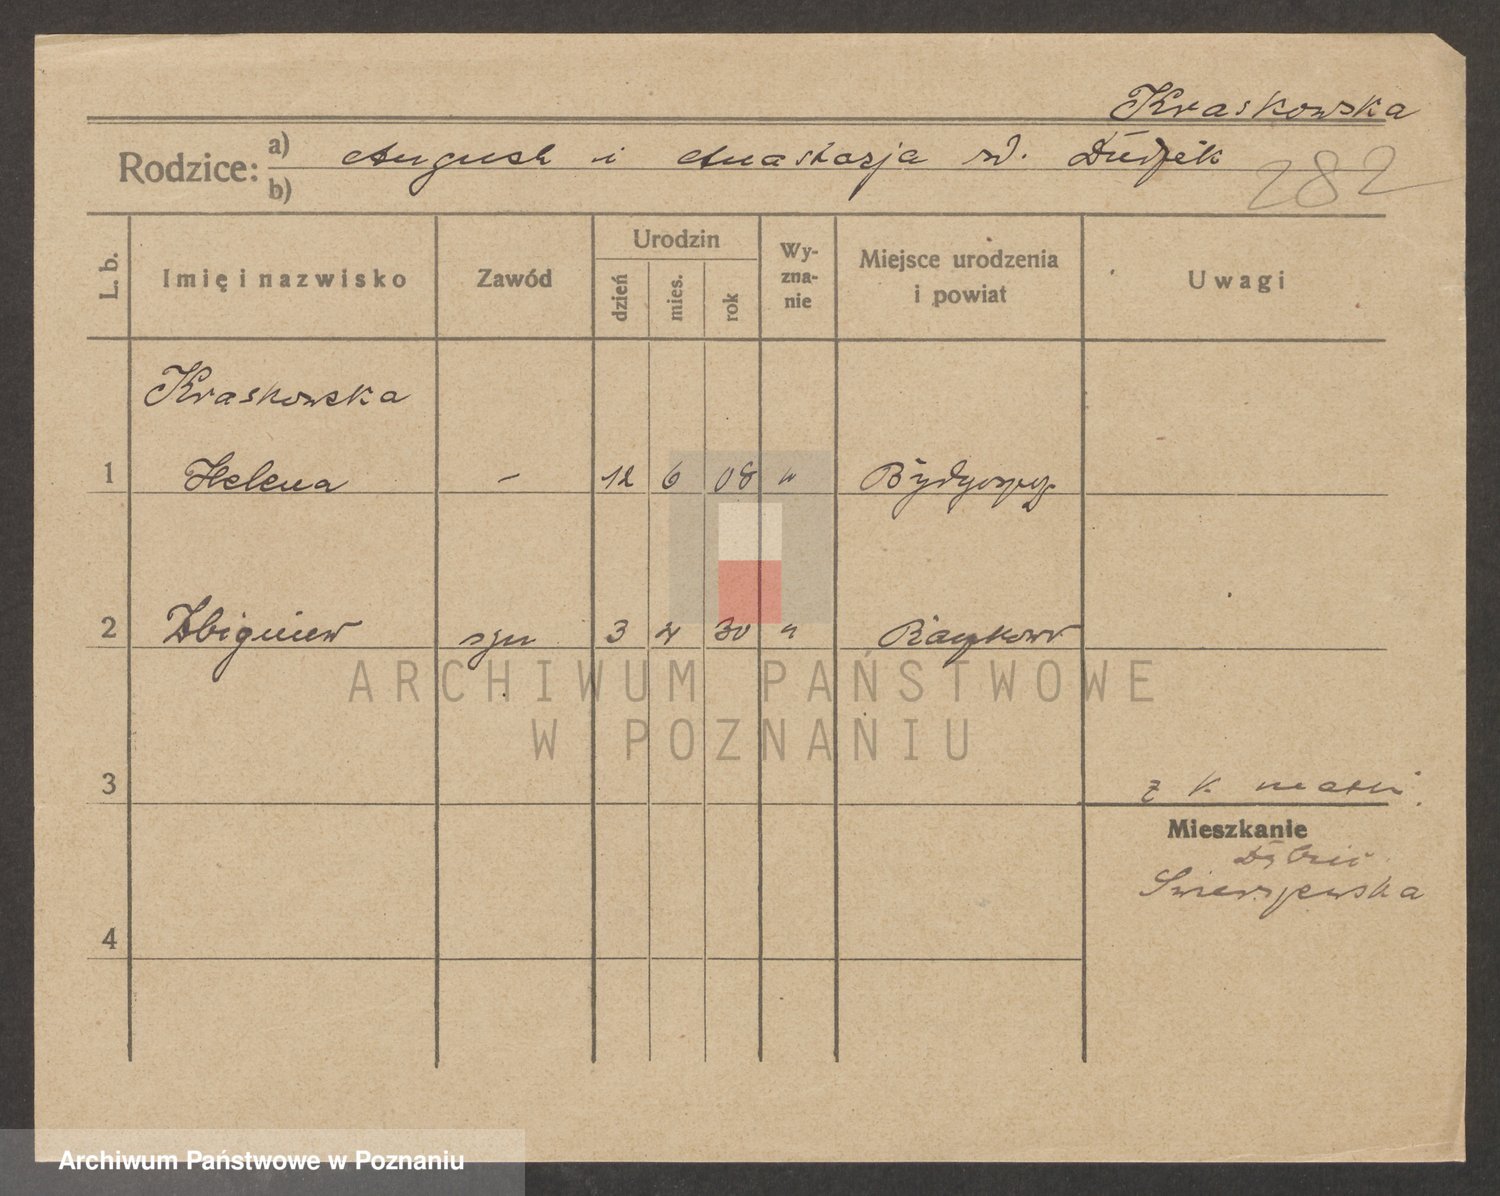 Kraskowska
Rodzice: a) August i Anastazja
b)
282
L. b.
Imię i nazwisko
Zawód
Urodzin
dzień
mies.
rok
Wy-
zna-
nie
Miejsce urodzenia
i powiat
Uwagi
Kraskowska
1 Helena - 12 6 08 " Bydgoszcz
2 Zbigniew syn 3 4 30 "
ARCHIWUM PAŃSTWOWE
W POZNANIU
3
z k.
Mieszkanie
4
Archiwum Państwowe w Poznaniu